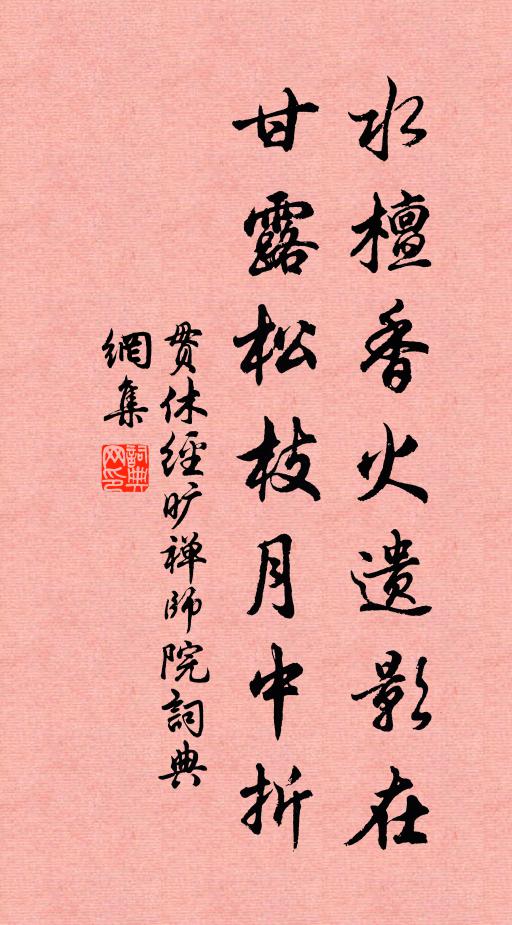 水檀香火遗影在
甘露松枝月中折
贯休經旷禅師院詞典
網集
詞典
网印